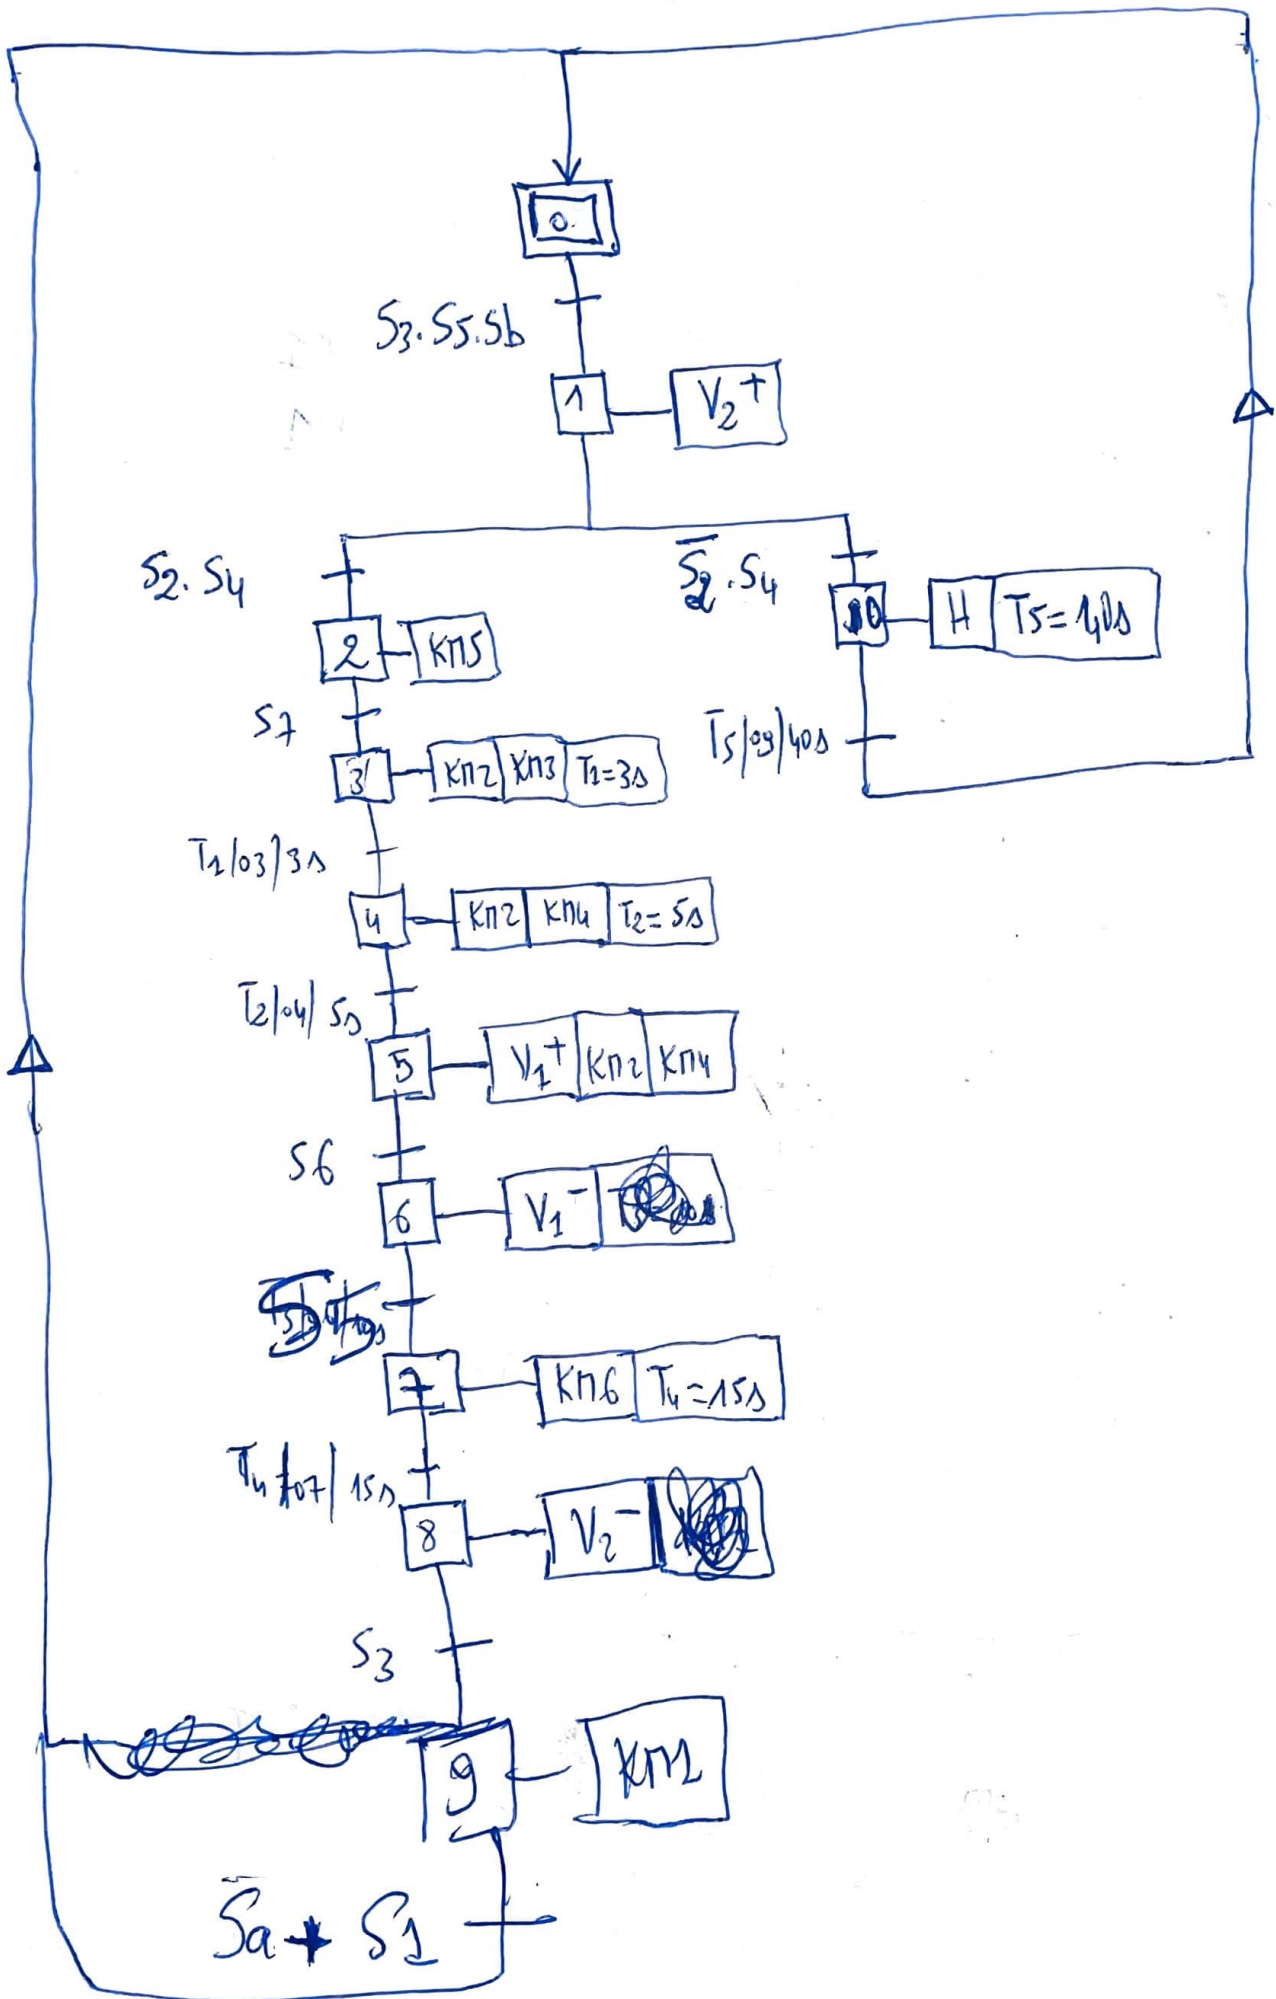 0.
S3.S5.Sb
1 V2+
S2.S4
S̄2.S4
2 KM5
10 H
S7
3 KM2 KM3 T1=3s
T5/09/40s
T1/03/3s
4 KM2 KM4 T2=5s
T2/04/5s
5 V1+ KM2 KM4
S6
6 V1-
7 KM6 T4=15s
T4/07/15s
8 V2-
S3
9 KM1
S̄a + S1